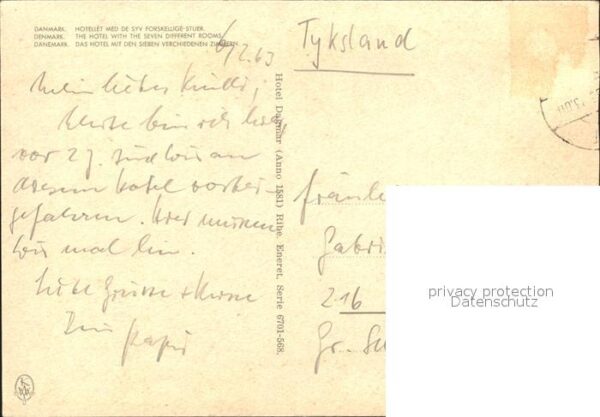 DANMARK. HOTELLET MED DE SYV FORSKELLIGE STUER.
DENMARK. THE HOTEL WITH THE SEVEN DIFFERENT ROOMS.
DÄNEMARK. DAS HOTEL MIT DEN SIEBEN VERSCHIEDENEN ZIMMERN.
2.63
Mein liebes
Heute bin ich hier,
vor 27. sind wir an
diesem Hotel vorbei-
gefahren. Hier müssen
wir mal hin.
Liebe Grüsse + Küsse
Dein Papi
Hotel Dagmar (Anno 1581) Ribe. Eneret. Serie 6701-568.
Tyksland
Fräulei
Gabri
216
Gr.
privacy protection
Datenschutz